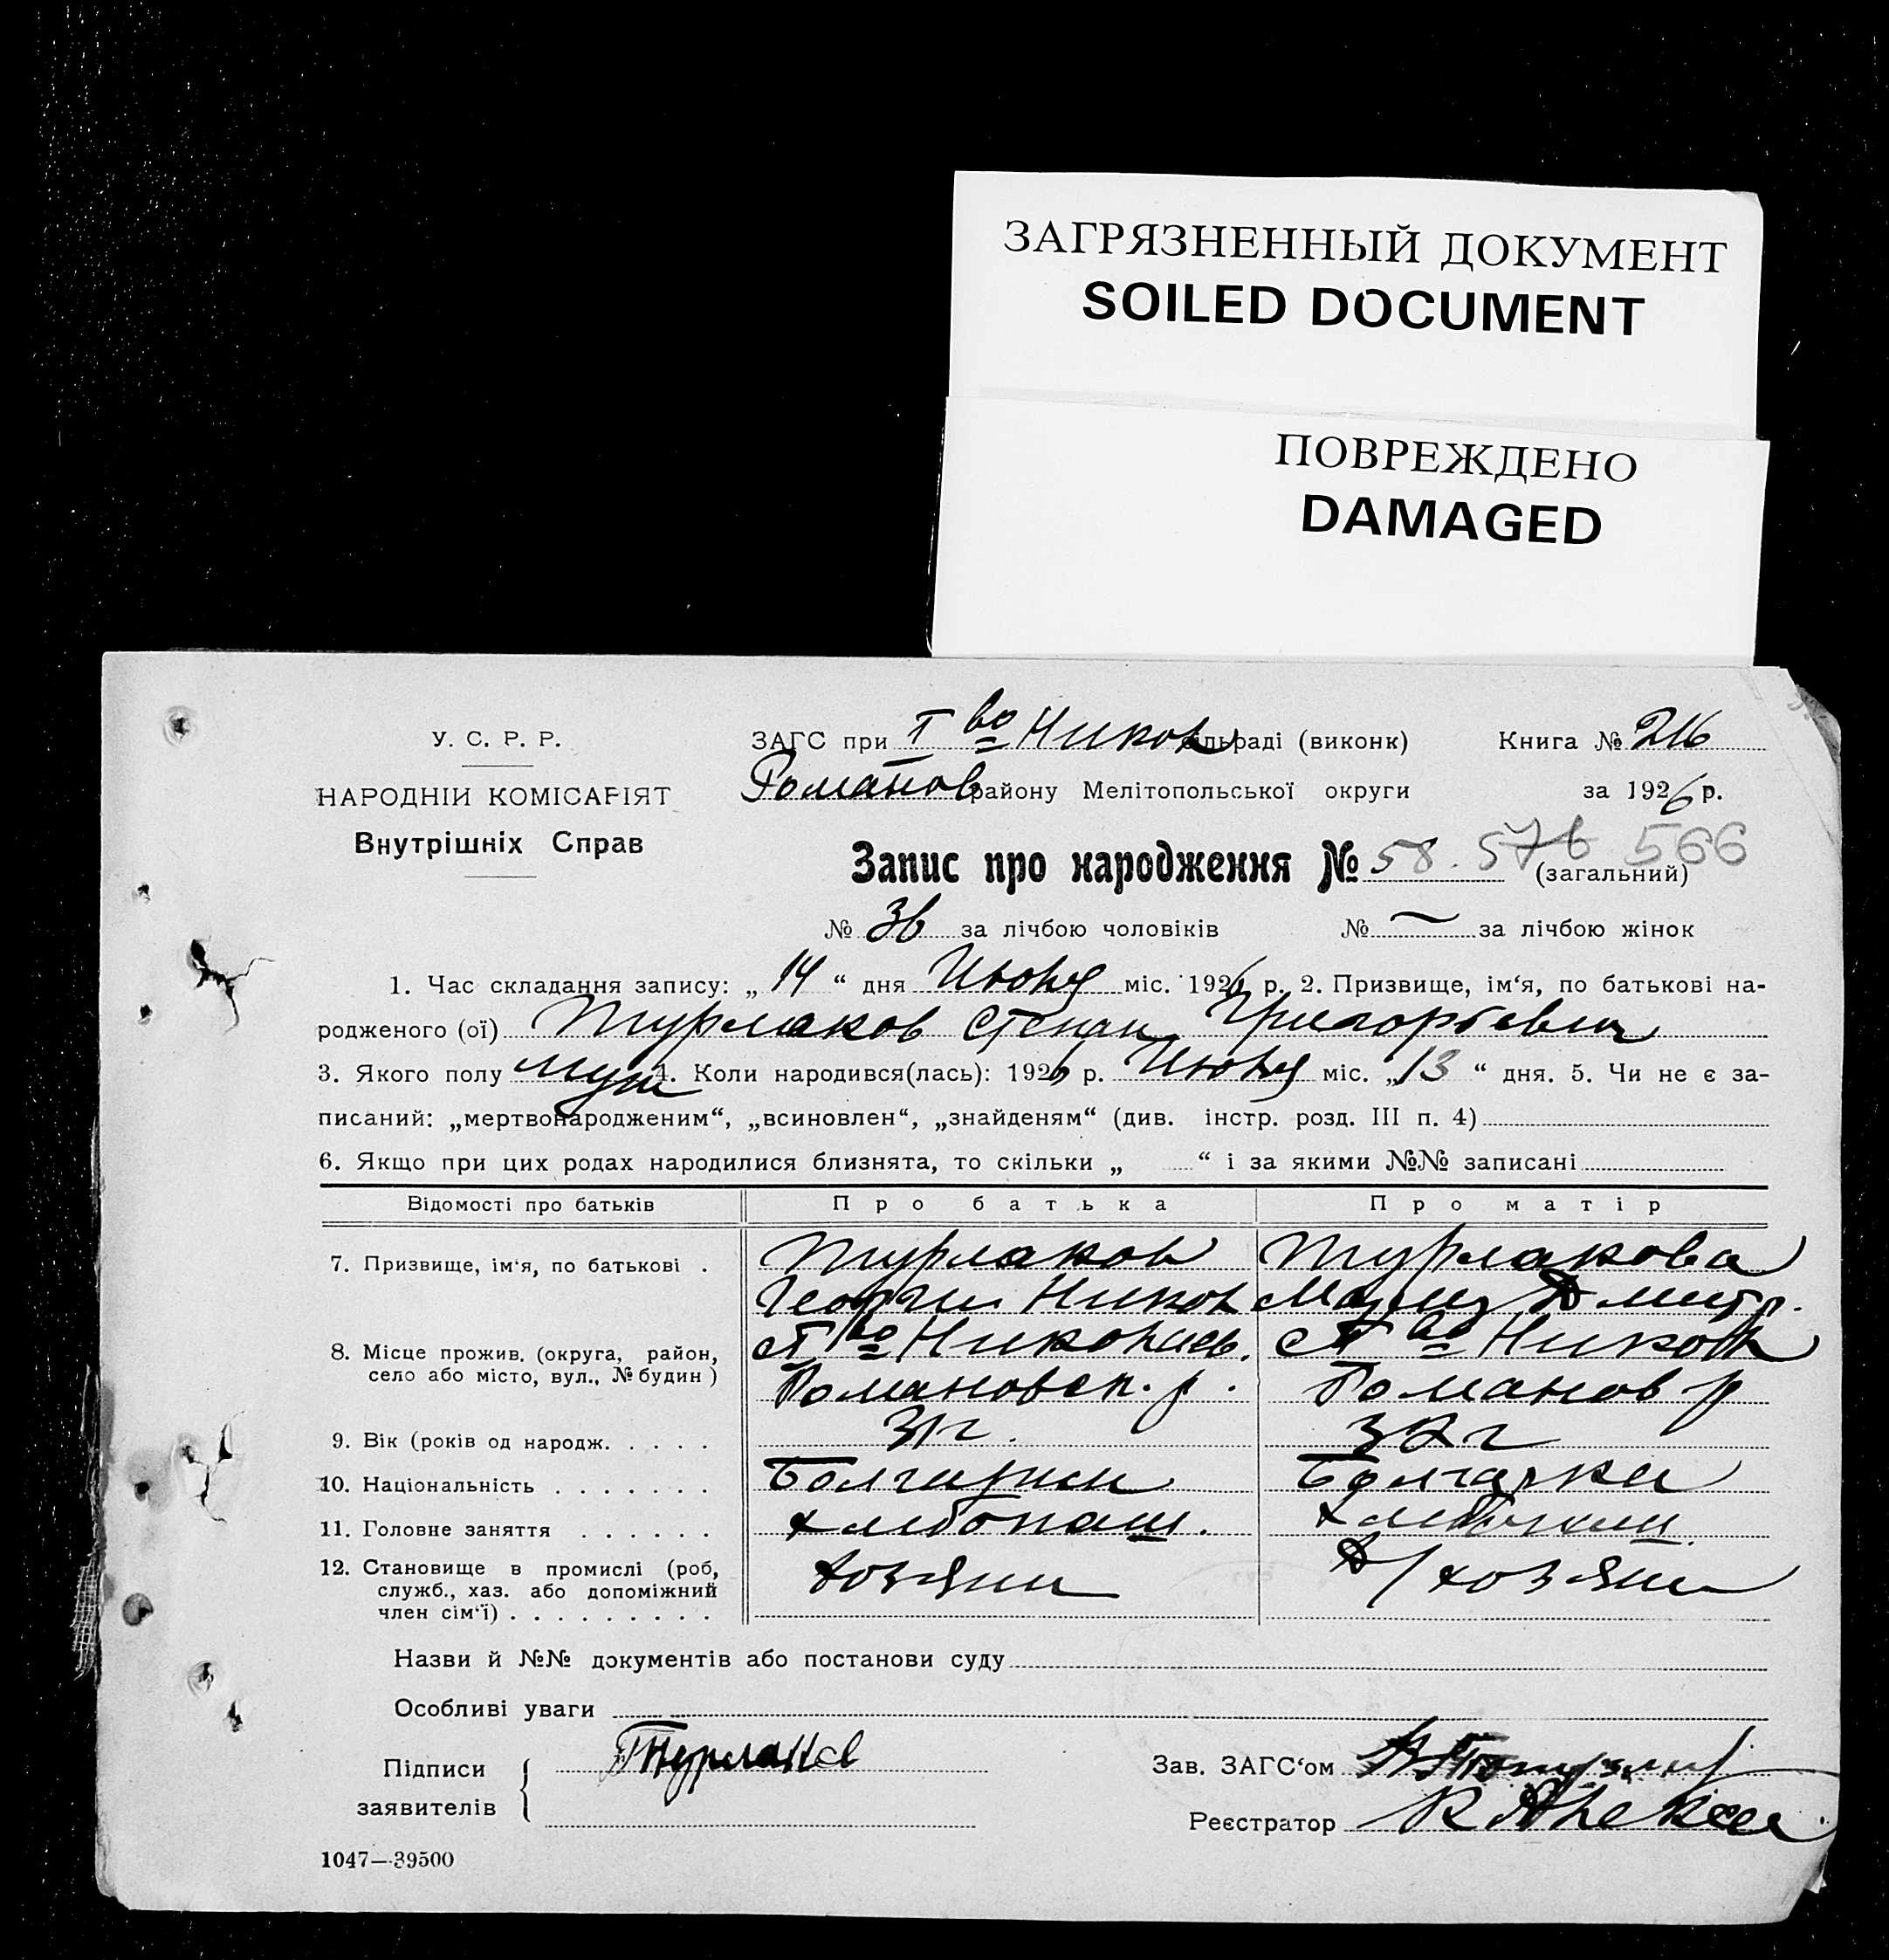 ЗАГРЯЗНЕННЫЙ ДОКУМЕНТ
SOILED DOCUMENT
ПОВРЕЖДЕНО
DAMAGED
У. С. Р. Р.
НАРОДНІЙ КОМІСАРІЯТ
Внутрішніх Справ
ЗАГС при Т во Никол сільраді (виконк) Книга № 216
Романов району Мелітопольської округи за 1926 р.
Запис про народження № 58. 576 566 (загальний)
№ 36 за лічбою чоловіків № — за лічбою жінок
1. Час складання запису: „ 14 “ дня Июня міс. 1926 р. 2. Призвище, ім‘я, по батькові на-
родженого (ої) Турлаков Степан Григорьевич
3. Якого полу муж 4. Коли народився(лась): 1926 р. Июня міс. „13 “ дня. 5. Чи не є за-
писаний: „мертвонародженим“, „всиновлен“, „знайденям“ (див. інстр. розд. III п. 4)
6. Якщо при цих родах народилися близнята, то скільки „ “ і за якими №№ записані
Відомості про батьків Про батька Про матір
7. Призвище, ім‘я, по батькові . Турлаков Турлакова
Георги Никол Дмитр.
8. Місце прожив. (округа, район, Т во Николаев. Т во Никол
село або місто, вул., № будин) Романовск. р. Романов р
9. Вік (років од народж. . . . . 31 г. 32 г
10. Національність . . . . . . . Болгарин Болгарка
11. Головне заняття . . . . . . хлебопаш. хлебопаш.
12. Становище в промислі (роб, хозяин д/хозяин
служб., хаз. або допоміжний
член сім‘ї) . . . . . . . . .
Назви й №№ документів або постанови суду
Особливі уваги
Підписи Турлаков Зав. ЗАГС‘ом
заявителів Реєстратор
1047—39500